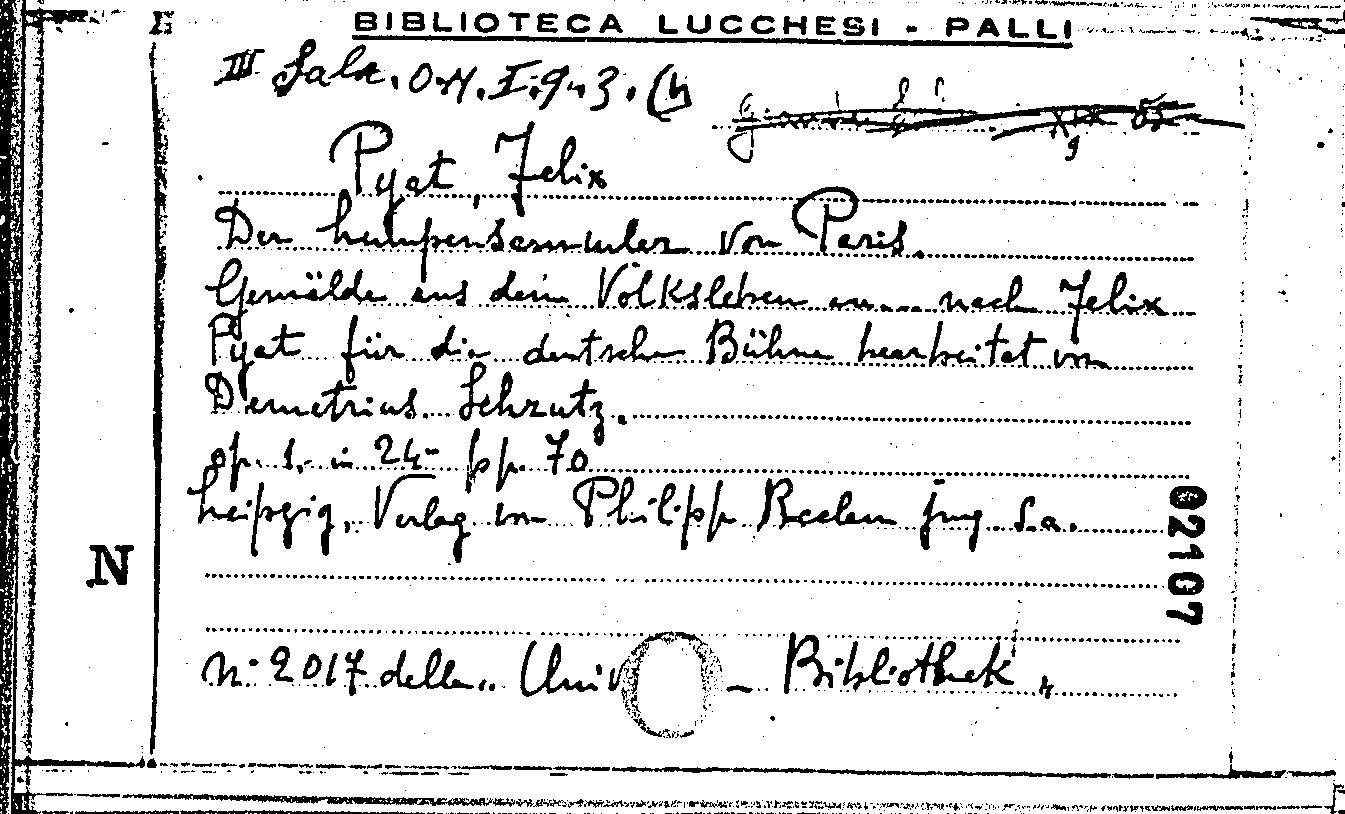 BIBLIOTECA LUCCHESI - PALLI
III Sala. O.M. I. 9. 3. (4
Pyat, Felix
Der Lumpensammler von Paris.
Gemälde aus dem Volksleben nach Felix
Pyat für die deutsche Bühne bearbeitet von
Demetrius Schrutz.
op. 1. in 24- pp. 70
Leipzig, Verlag von Philipp Reclam jung. S.a.
02107
N
N. 2017 della „ Univ - Bibliothek „